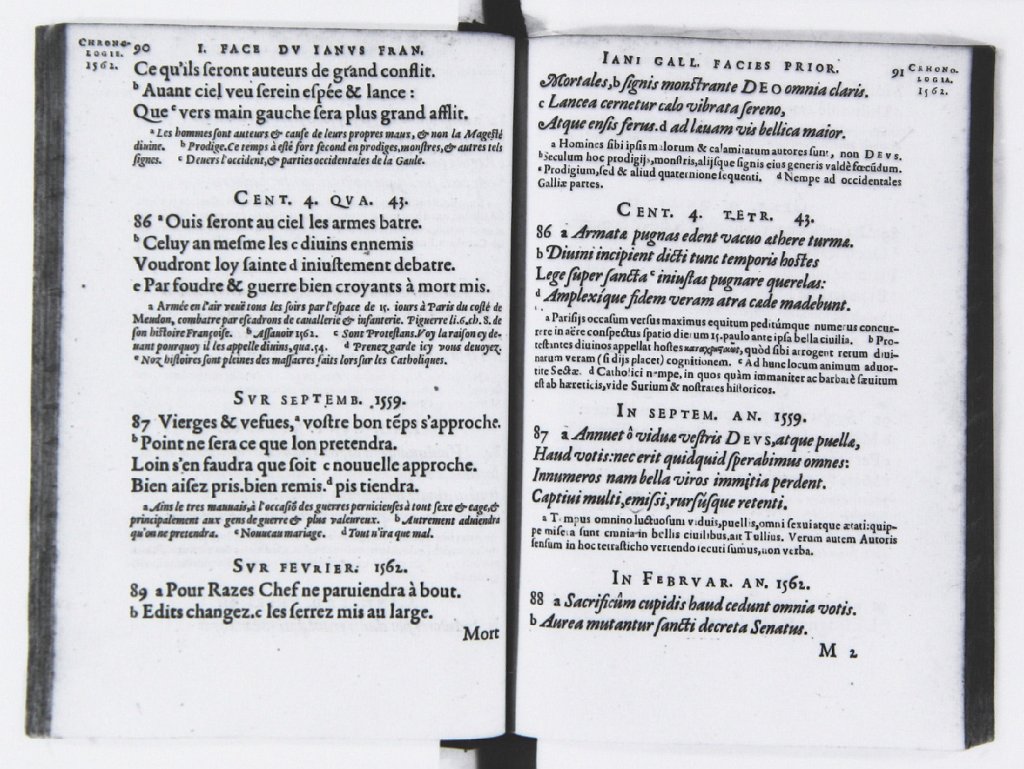 CHRONO-
LOGIE.
1562.
90 I. FACE DV IANVS FRAN.
Ce qu'ils ſeront auteurs de grand conflit.
b Auant ciel veu ſerein eſpée & lance :
Que c vers main gauche ſera plus grand afflit.
a Les hommes ſont auteurs & cauſe de leurs propres maux, & non la Mageſté
diuine. b Prodige. Ce temps à eſté fort fecond en prodiges, monſtres, & autres tels
ſignes. c Deuers l'occident, & parties occidentales de la Gaule.
CENT. 4. QVA. 43.
86 a Ouis ſeront au ciel les armes batre.
b Celuy an meſme les c diuins ennemis
Voudront loy ſainte d iniuſtement debatre.
e Par foudre & guerre bien croyants à mort mis.
a Armée en l'air veuë tous les ſoirs par l'eſpace de 15. iours à Paris du coſté de
Meudon, combatre par eſcadrons de cauallerie & infanterie. Piguerre li.6.ch. 8. de
ſon hiſtoire Françoiſe. b Aſſauoir 1562. c Sont Proteſtans. Voy la raiſon cy de-
uant pourquoy il les appelle diuins, qua. 54. d Prenez garde icy vous deuoyez.
e Noz hiſtoires ſont pleines des maſſacres faits lors ſur les Catholiques.
SVR SEPTEMB. 1559.
87 Vierges & vefues, a voſtre bon tẽps s'approche.
b Point ne ſera ce que lon pretendra.
Loin s'en faudra que ſoit c nouuelle approche.
Bien aiſez pris. bien remis. d pis tiendra.
a Ains le tres mauuais, à l'occaſiõ des guerres pernicieuſes à tout ſexe & eage, &
principalement aux gens de guerre & plus valeureux. b Autrement aduiendra
qu'on ne pretendra. c Nouueau mariage. d Tout n'ira que mal.
SVR FEVRIER. 1562.
89 a Pour Razes Chef ne paruiendra à bout.
b Edits changez. c les ſerrez mis au large.
Mort
IANI GALL. FACIES PRIOR. 91
CHRONO-
LOGIA.
1562.
Mortales, b ſignis monſtrante DEO omnia claris.
c Lancea cernetur cælo vibrata ſereno,
Atque enſis ferus. d ad læuam vis bellica maior.
a Homines ſibi ipſis malorum & calamitatum autores ſunt, non DEVS.
b Seculum hoc prodigijs, monſtris, alijſque ſignis eius generis valdè fœcũdum.
c Prodigium, ſed & aliud quaternione ſequenti. d Nempe ad occidentales
Galliæ partes.
CENT. 4. TETR. 43.
86 a Armatæ pugnas edent vacuo æthere turmæ.
b Diuini incipient dicti tunc temporis hoſtes
Lege ſuper ſancta c iniuſtas pugnare querelas:
d Amplexique fidem veram atra cæde madebunt.
a Pariſijs occaſum verſus maximus equitum peditúmque numerus concur-
rere in aëre conſpectus ſpatio dierum 15. paulo ante ipſa bella ciuilia. b Pro-
teſtantes diuinos appellat hoſtes καταχρηστικῶς, quòd ſibi arrogent rerum diui-
narum veram (ſi dijs placet) cognitionem. c Ad hunc locum animum aduor-
tite Sectæ. d Catholici nempe, in quos quàm immaniter ac barbarè ſæuitum
eſt ab hæreticis, vide Surium & noſtrates hiſtoricos.
IN SEPTEM. AN. 1559.
87 a Annuet ô viduæ veſtris DEVS, atque puellæ,
Haud votis: nec erit quidquid ſperabimus omnes:
Innumeros nam bella viros immitia perdent.
Captiui multi, emiſſi, rurſúſque retenti.
a Tempus omnino luctuoſum viduis, puellis, omni ſexui atque ætati: quip-
pe miſera ſunt omnia in bellis ciuilibus, ait Tullius. Verum autem Autoris
ſenſum in hoc tetraſticho vertendo ſecuti ſumus, non verba.
IN FEBRVAR. AN. 1562.
88 a Sacrificûm cupidis haud cedunt omnia votis.
b Aurea mutantur ſancti decreta Senatus.
M 2